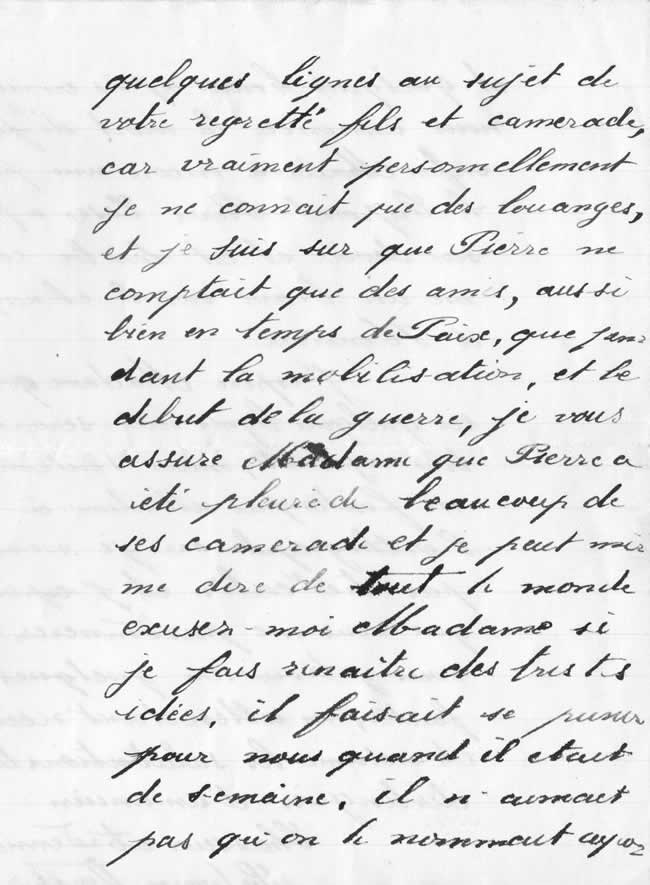 quelques lignes au sujet de
votre regretté fils et camerade,
car vraiment personnellement
je ne connait que des louanges,
et je suis sur que Pierre ne
comptait que des amis, aussi
bien en temps de Paix, que pen=
dant la mobilisation, et le
debut de la guerre, je vous
assure Madame que Pierre a
été pleuré de beaucoup de
ses camerade et je peut mê
me dire de tout le monde
excusez-moi Madame si
je fais renaître des tristes
idées, il faisait se
pour nous quand il etait
de semaine, il n'aimait
pas qu'on le nommait